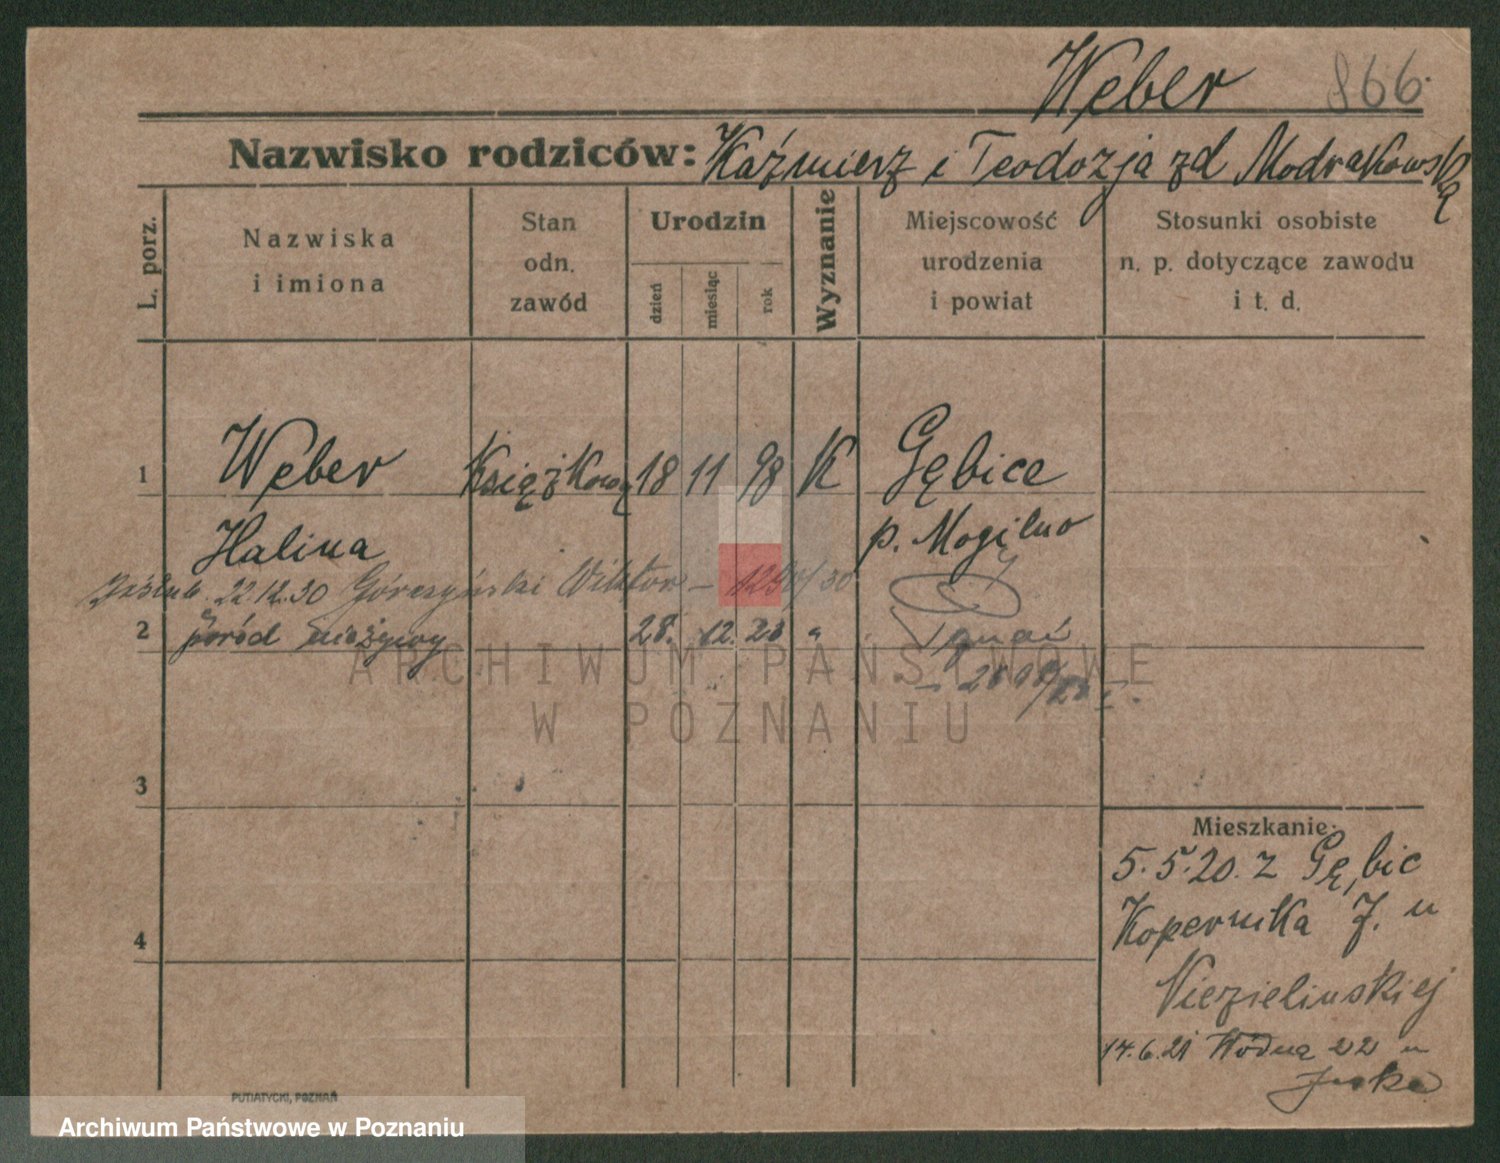 Weber 866.
Nazwisko rodziców: Kaźmierz i Teodozja zd Modrakowską
L. porz.
Nazwiska
i imiona
Stan
odn.
zawód
Urodzin
dzień
miesiąc
rok
Wyznanie
Miejscowość
urodzenia
i powiat
Stosunki osobiste
n. p. dotyczące zawodu
i t. d.
1 Weber Książkowa 18 11 98 K Gębice
Halina p. Mogilno
22.12.30 Górczyński Wiktor
2 poród nieżywy 28. 12. 28 "
3
4
Mieszkanie:
5.5.20. z Gębic
Kopernika 7. u
Niezielinskiej
14.6.21 Wodna 22 u
PUTIATYCKI, POZNAŃ
ARCHIWUM PAŃSTWOWE
W POZNANIU
Archiwum Państwowe w Poznaniu